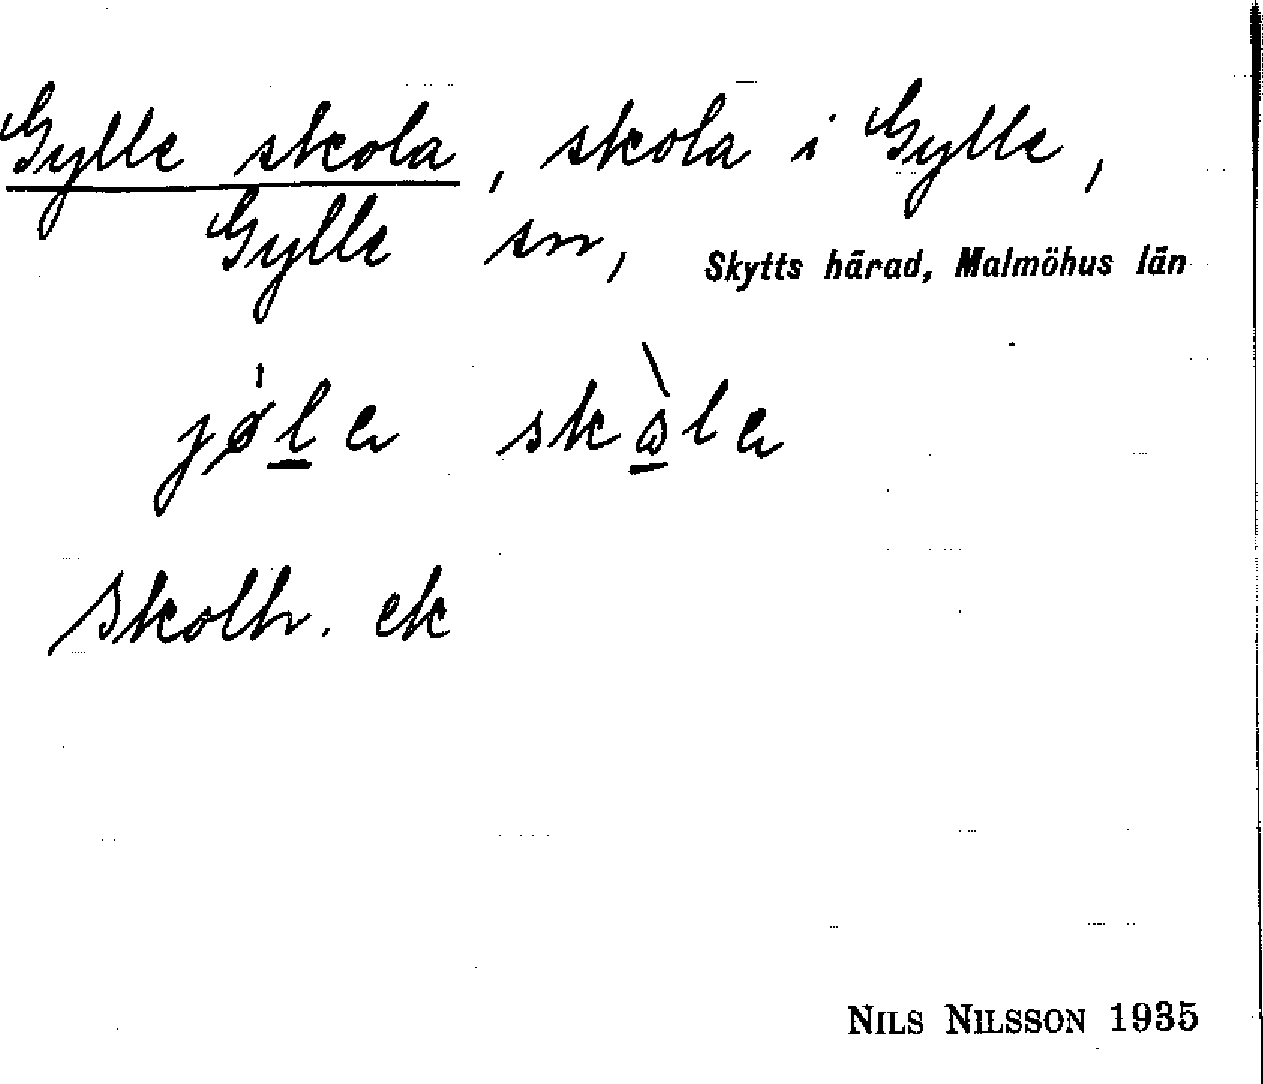 Gylle skola, skola i Gylle,
Gylle sn, Skytts härad, Malmöhus län
jø̍l̲ɐ skòlɐ
Skolh. ek
NILS NILSSON 1935